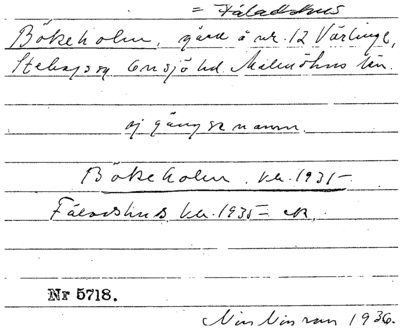 = Fäladshus
Bökeholm, gård å nr. 12 Värlinge,
Stehags sn Onsjö hd. Malmöhus län.
ej gängse namn.
Bökeholm. kh. 1935
Fäladshus kh. 1935 =
Nr 5718.
1936.